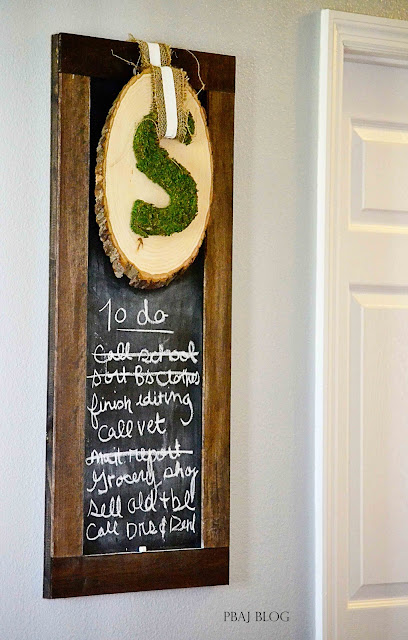 S
To do
Call school
sort Bs Clothes
finish editing
Call vet
mail report
Grocery shop
Sell old tbl
Call Drs &
PBAJ BLOG